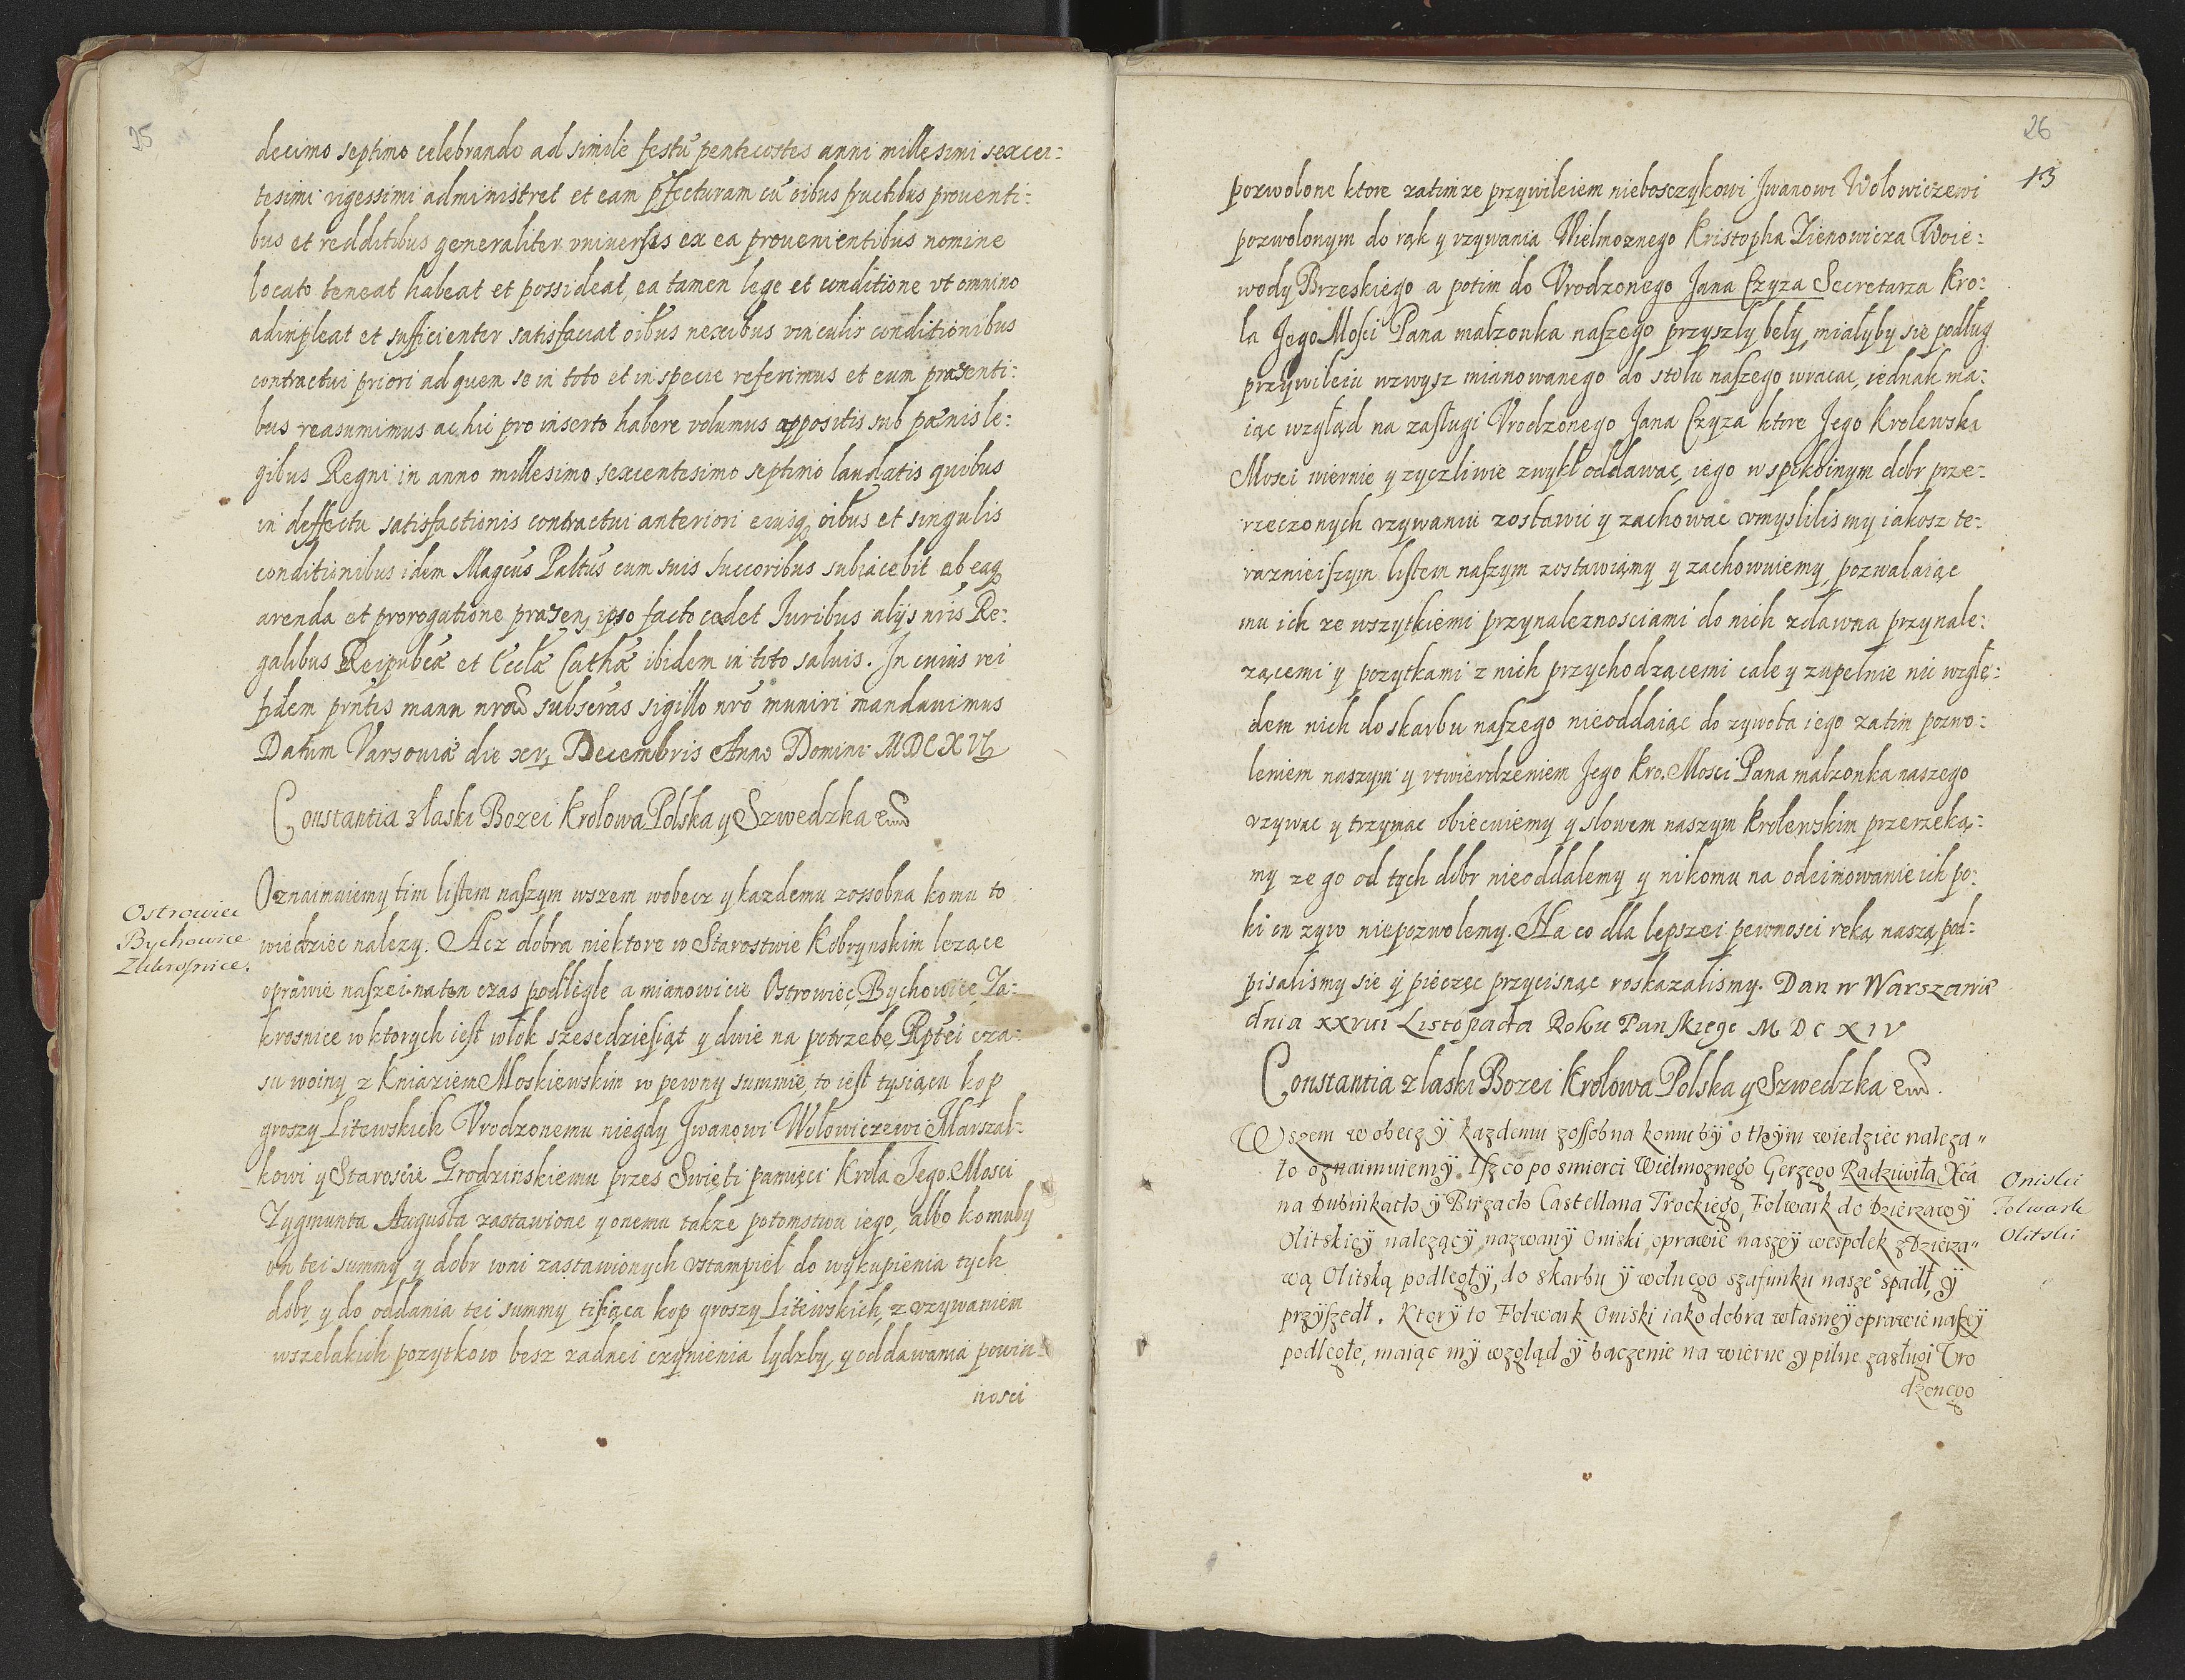 25
decimo septimo celebrando ad simile festũ pentecostes anni millesimi sexcen:
tesimi vigessimi administret et eam pfecturam cũ oibus fructibus prouenti:
bus et redditibus generaliter vniuersis ex ea prouenientibus nomine
locato teneat habeat et possideat, ea tamen lege et conditione vt omnino
adimpleat et sufficienter satisfaciat oibus nexibus vinculis conditionibus
contractui priori ad quem se in toto et in specie referimus et eum præsenti:
bus reasumimus ac hic pro inserto habere volumus appositis sub pœnis le:
gibus Regni in anno millesimo sexcentesimo septimo laudatis quibus
in deffectu satisfactionis contractui anteriori eiusq oibus et singulis
conditionibus idem Magcus Paltus cum suis succoribus subiacebit ab eaq
arenda et prorogatione præsen, ipso facto cadet Iuribus alijs nris Re:
galibus Reipubcæ et Ecclæ Cathæ ibidem in toto saluis. In cuius rei
fidem prntes manu nra subscras sigillo nro muniri mandauimus
Datum Varsouiæ die xv Decembris Anno Domini MDCXVI
Constantia z laski Bozei Krolowa Polska y Szwedzka etc
Ostrowiec
Bychowice
Zakrosnice.
Oznaimuiemy tim listem naszym wszem wobecz y kazdemu zossobna komu to
wiedziec nalezy. Acz dobra niektore w Starostwie Kobrynskim lezące
oprawie naszei na ten czas podległe a mianowicie Ostrowiec, Bychowice, Za:
krosnice w ktorych iest włok szescdziesiąt y dwie na potrzebę Rptei cza:
su woiny z Kniaziem Moskiewskim w pewny summie, to iest tysiącu kop
groszy Litewskich Vrodzonemu niegdy Iwanowi Wołowiczewi Marszał:
kowi y Staroscie Grodzinskiemu przes Swięti pamięci Krola Jego Mosci
Zygmunta Augusta zastawione y onemu takze potomstwu iego, albo komuby
on tei summy y dobr wni zastawionych vstampieł do wykupienia tych
dobr y do oddania tei summy tisiąca kop groszy Litewskich, z vzywaniem
wszelakich pozytkow besz zadnei czynienia lydzby, y oddawania powin:
nosci
26
13
pozwolone ktore zatimze przywileiem nieboszczykowi Jwanowi Wołowiczewi
pozwolonym do rąk y vzywania Wielmoznego Kristopha Zienowicza Woie:
wody Brzeskiego a potim do Vrodzonego Jana Czyza Secretarza Kro:
la Jego Mosci Pana małzonka naszego przyszły beły, miałyby się podług
przywileiu wzwysz mianowanego do stołu naszego wracac, iednak ma:
iąc wzgląd na zasługi Vrodzonego Jana Czyza ktore Jego Krolewska
Mosci wiernie y zyczliwie zwykł oddawac, iego w spokoinym dobr prze:
rzeczonych vzywaniu zostawic y zachowac vmyslilismy iakosz te:
raznieiszym listem naszym zostawiąmy y zachowuiemy, pozwalaiąc
mu ich ze wszytkiemi przynaleznosciami do nich zdawna przynale:
zącemi y pozytkami z nich przychodzącemi cale y zupełnie nic wzglę:
dem nich do skarbu naszego nieoddaiąc do zywota iego zatim pozwo:
leniem naszym y vtwierdzeniem Jego Kro. Mosci Pana małzonka naszego
vzywac y trzymac obiecuiemy y słowem naszym krolewskim przerzeką:
my ze go od tych dobr nieoddalemy y nikomu na odeimowanie ich po:
ki on zyw niepozwolemy. Na co dla lepszei pewnosci reką naszą pod:
pisalismy się y pieczęc przycisnąc roskazalismy. Dan w Warszawie
dnia xxvii Listopada Roku Panskiego M D C X I V
Constantia z laski Bozei Krolowa Polska y Szwedzka etc.
Wszem wobecz ÿ kazdemu zossobna komu bÿ o thÿm wiedziec naleza„
to oznaimuiemÿ. Isz co po smierci Wielmoznego Gerzego Radziwiła Xcia
na Dubinkach ÿ Birzach Castellana Trockiego, Folwark do Dzierzawÿ
Olitskieÿ nalezącÿ nazwanÿ Oniski oprawie naszeÿ wespołek z Dzierza„
wą Olitską podległÿ, do skarbu ÿ wolnego szafunku nasze° spadł, ÿ
przÿszedł. Ktorÿ to Folwark Oniski iako dobra własneÿ oprawie naszeÿ
podległe, maiąc mÿ wzgląd ÿ baczenie na wierne ÿ pilne zasługi Vro
dzonego
Oniski
Folwark
Olitski